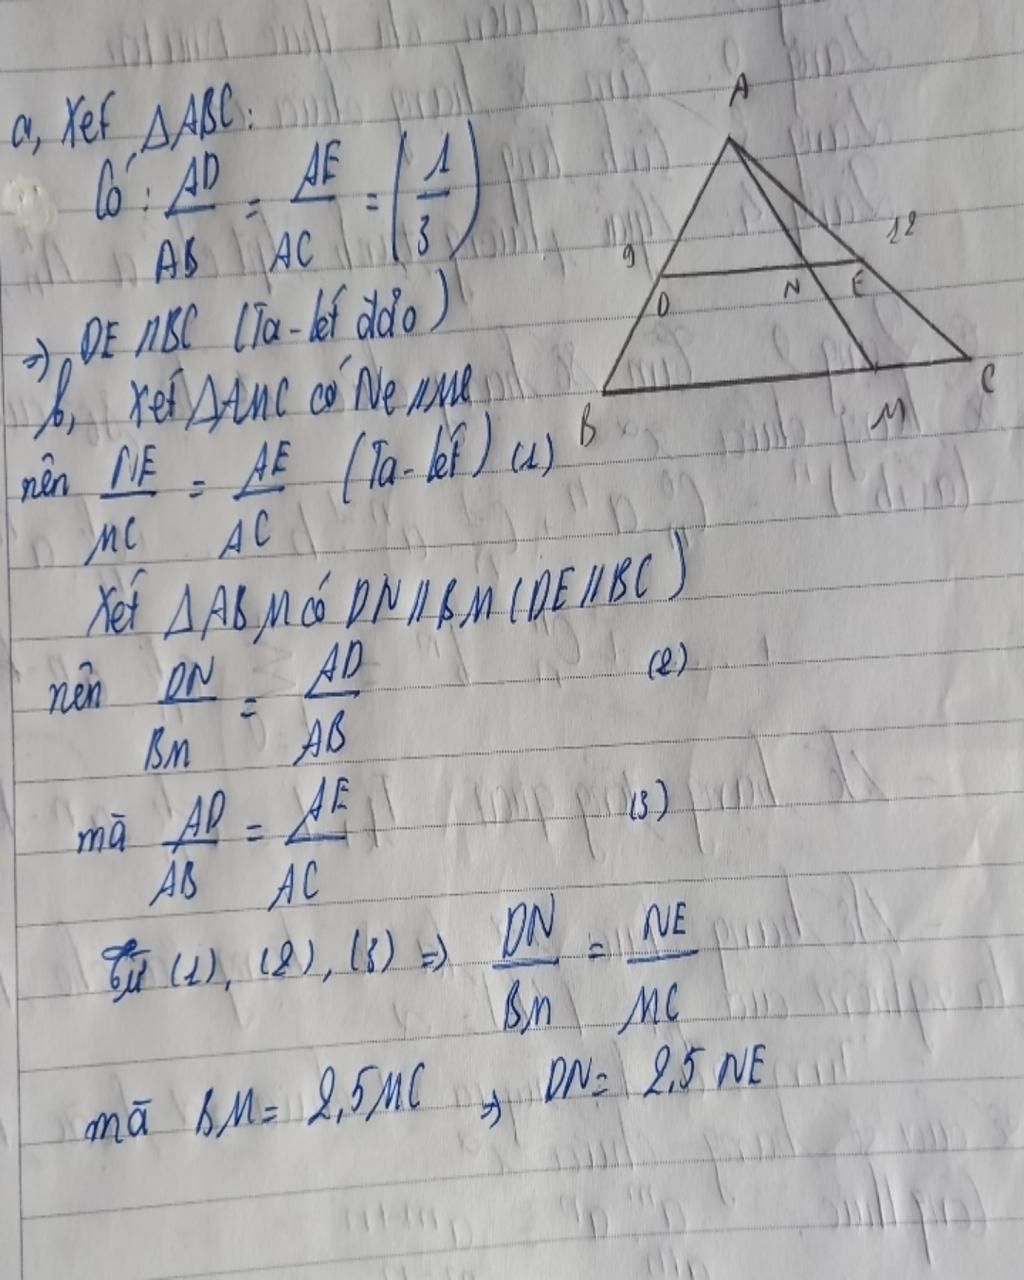 a, Xét ΔABC:
Có: AD/AB = AE/AC = (1/3)
=> DE // BC (Ta-lét đảo)
b, Xét ΔAMC có NE // MC
nên NE/MC = AE/AC (Ta-lét) (1)
Xét ΔABM có DN // BM (DE // BC)
nên DN/BM = AD/AB (2)
mà AD/AB = AE/AC (3)
Từ (1), (2), (3) => DN/BM = NE/MC
mà BM = 2,5MC => DN = 2,5 NE
A
9
12
D
N
E
B
M
C